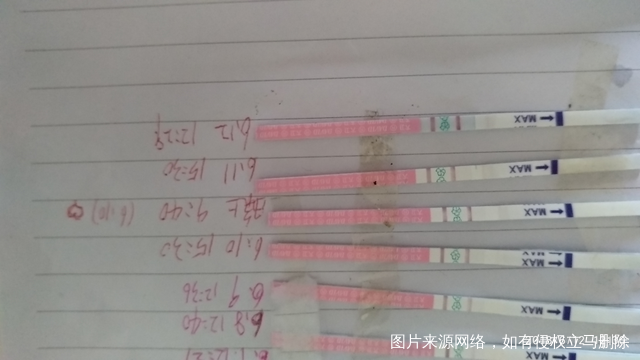 6.12 12:29
MAX
6.11 15:30
MAX
晚上 9:40 (6.10)
MAX
6.10 15:30
MAX
6.9 12:36
MAX
6.8 12:40
图片来源网络，如有侵权立马删除